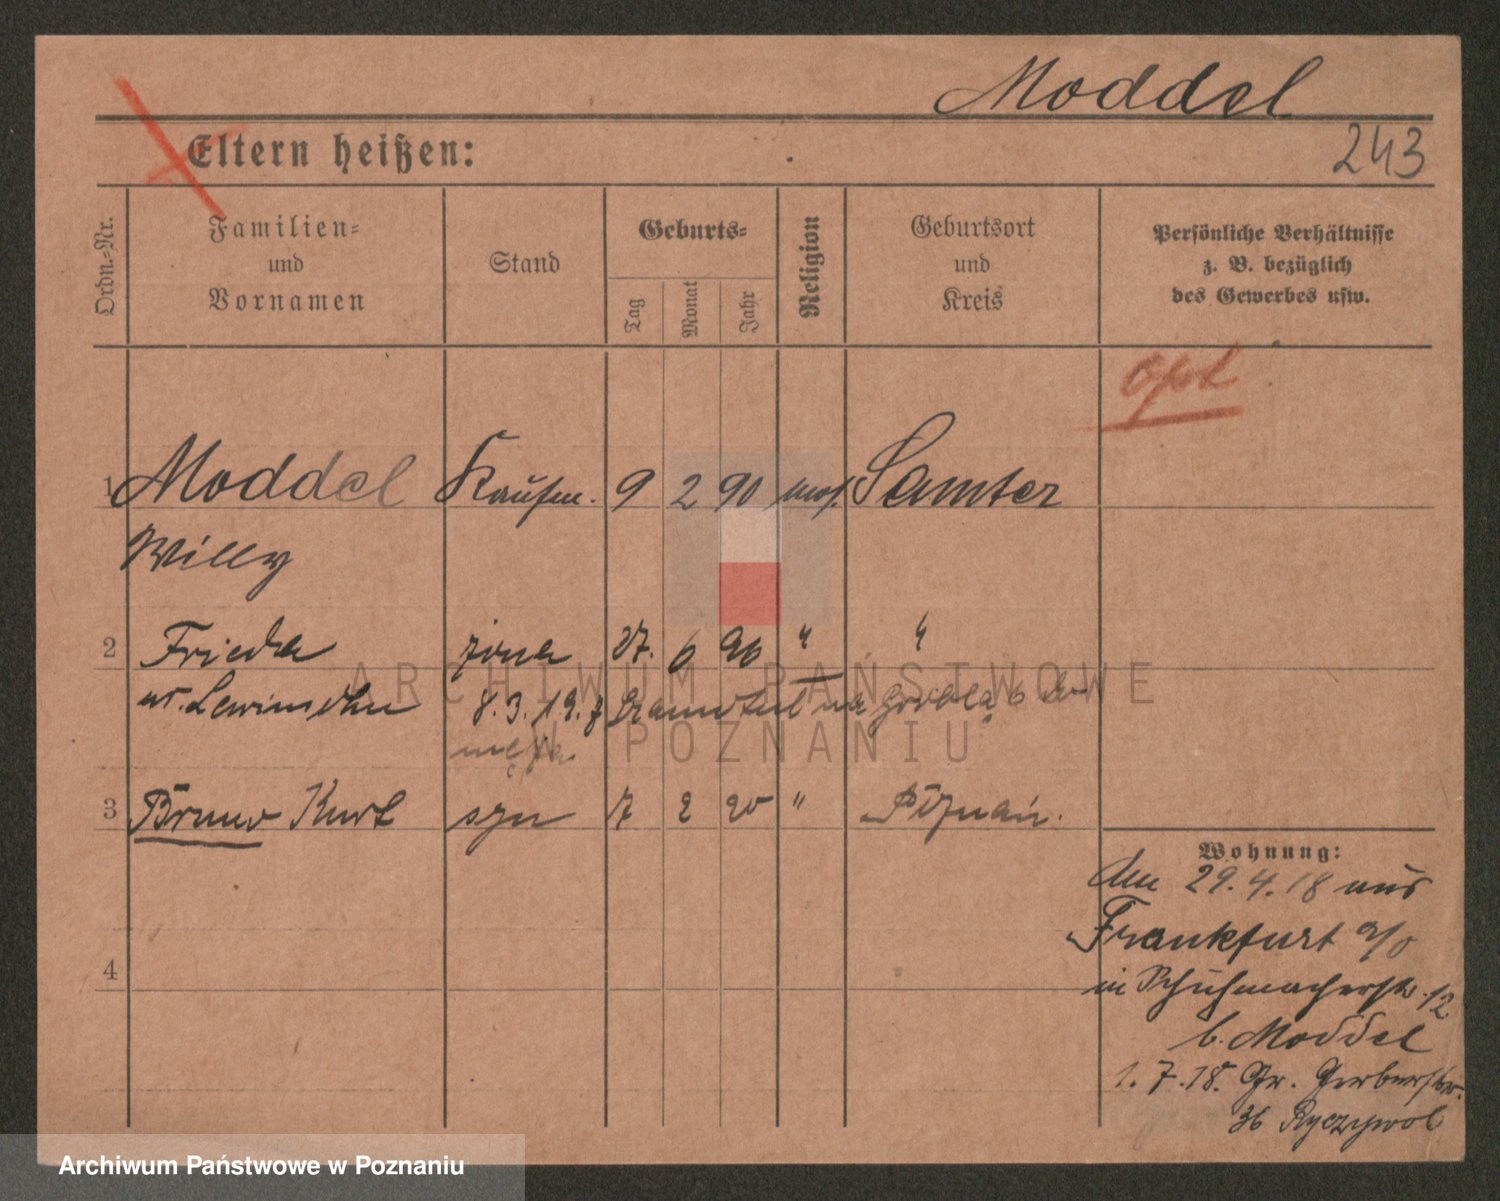 Moddel
243
Eltern heißen:
Ordn.-Nr.
Familien-
und
Vornamen
Stand
Geburts-
Tag
Monat
Jahr
Religion
Geburtsort
und
Kreis
Persönliche Verhältnisse
z. B. bezüglich
des Gewerbes usw.
opt
1 Moddel Kaufm. 9 2 90 mos. Samter
Willy
2 Frieda żona 27. 6 96 " "
8.3.19. z na Grobla 6 do
męża.
3 Bruno Kurt syn 7 2 20 " Poznań.
4
Wohnung:
den 29.4.18 aus
Frankfurt a/O
in Schuhmacherstr. 12
b. Moddel
1.7.18. Gr. Gerberstr.
36 Ryczywol
ARCHIWUM PAŃSTWOWE
W POZNANIU
Archiwum Państwowe w Poznaniu